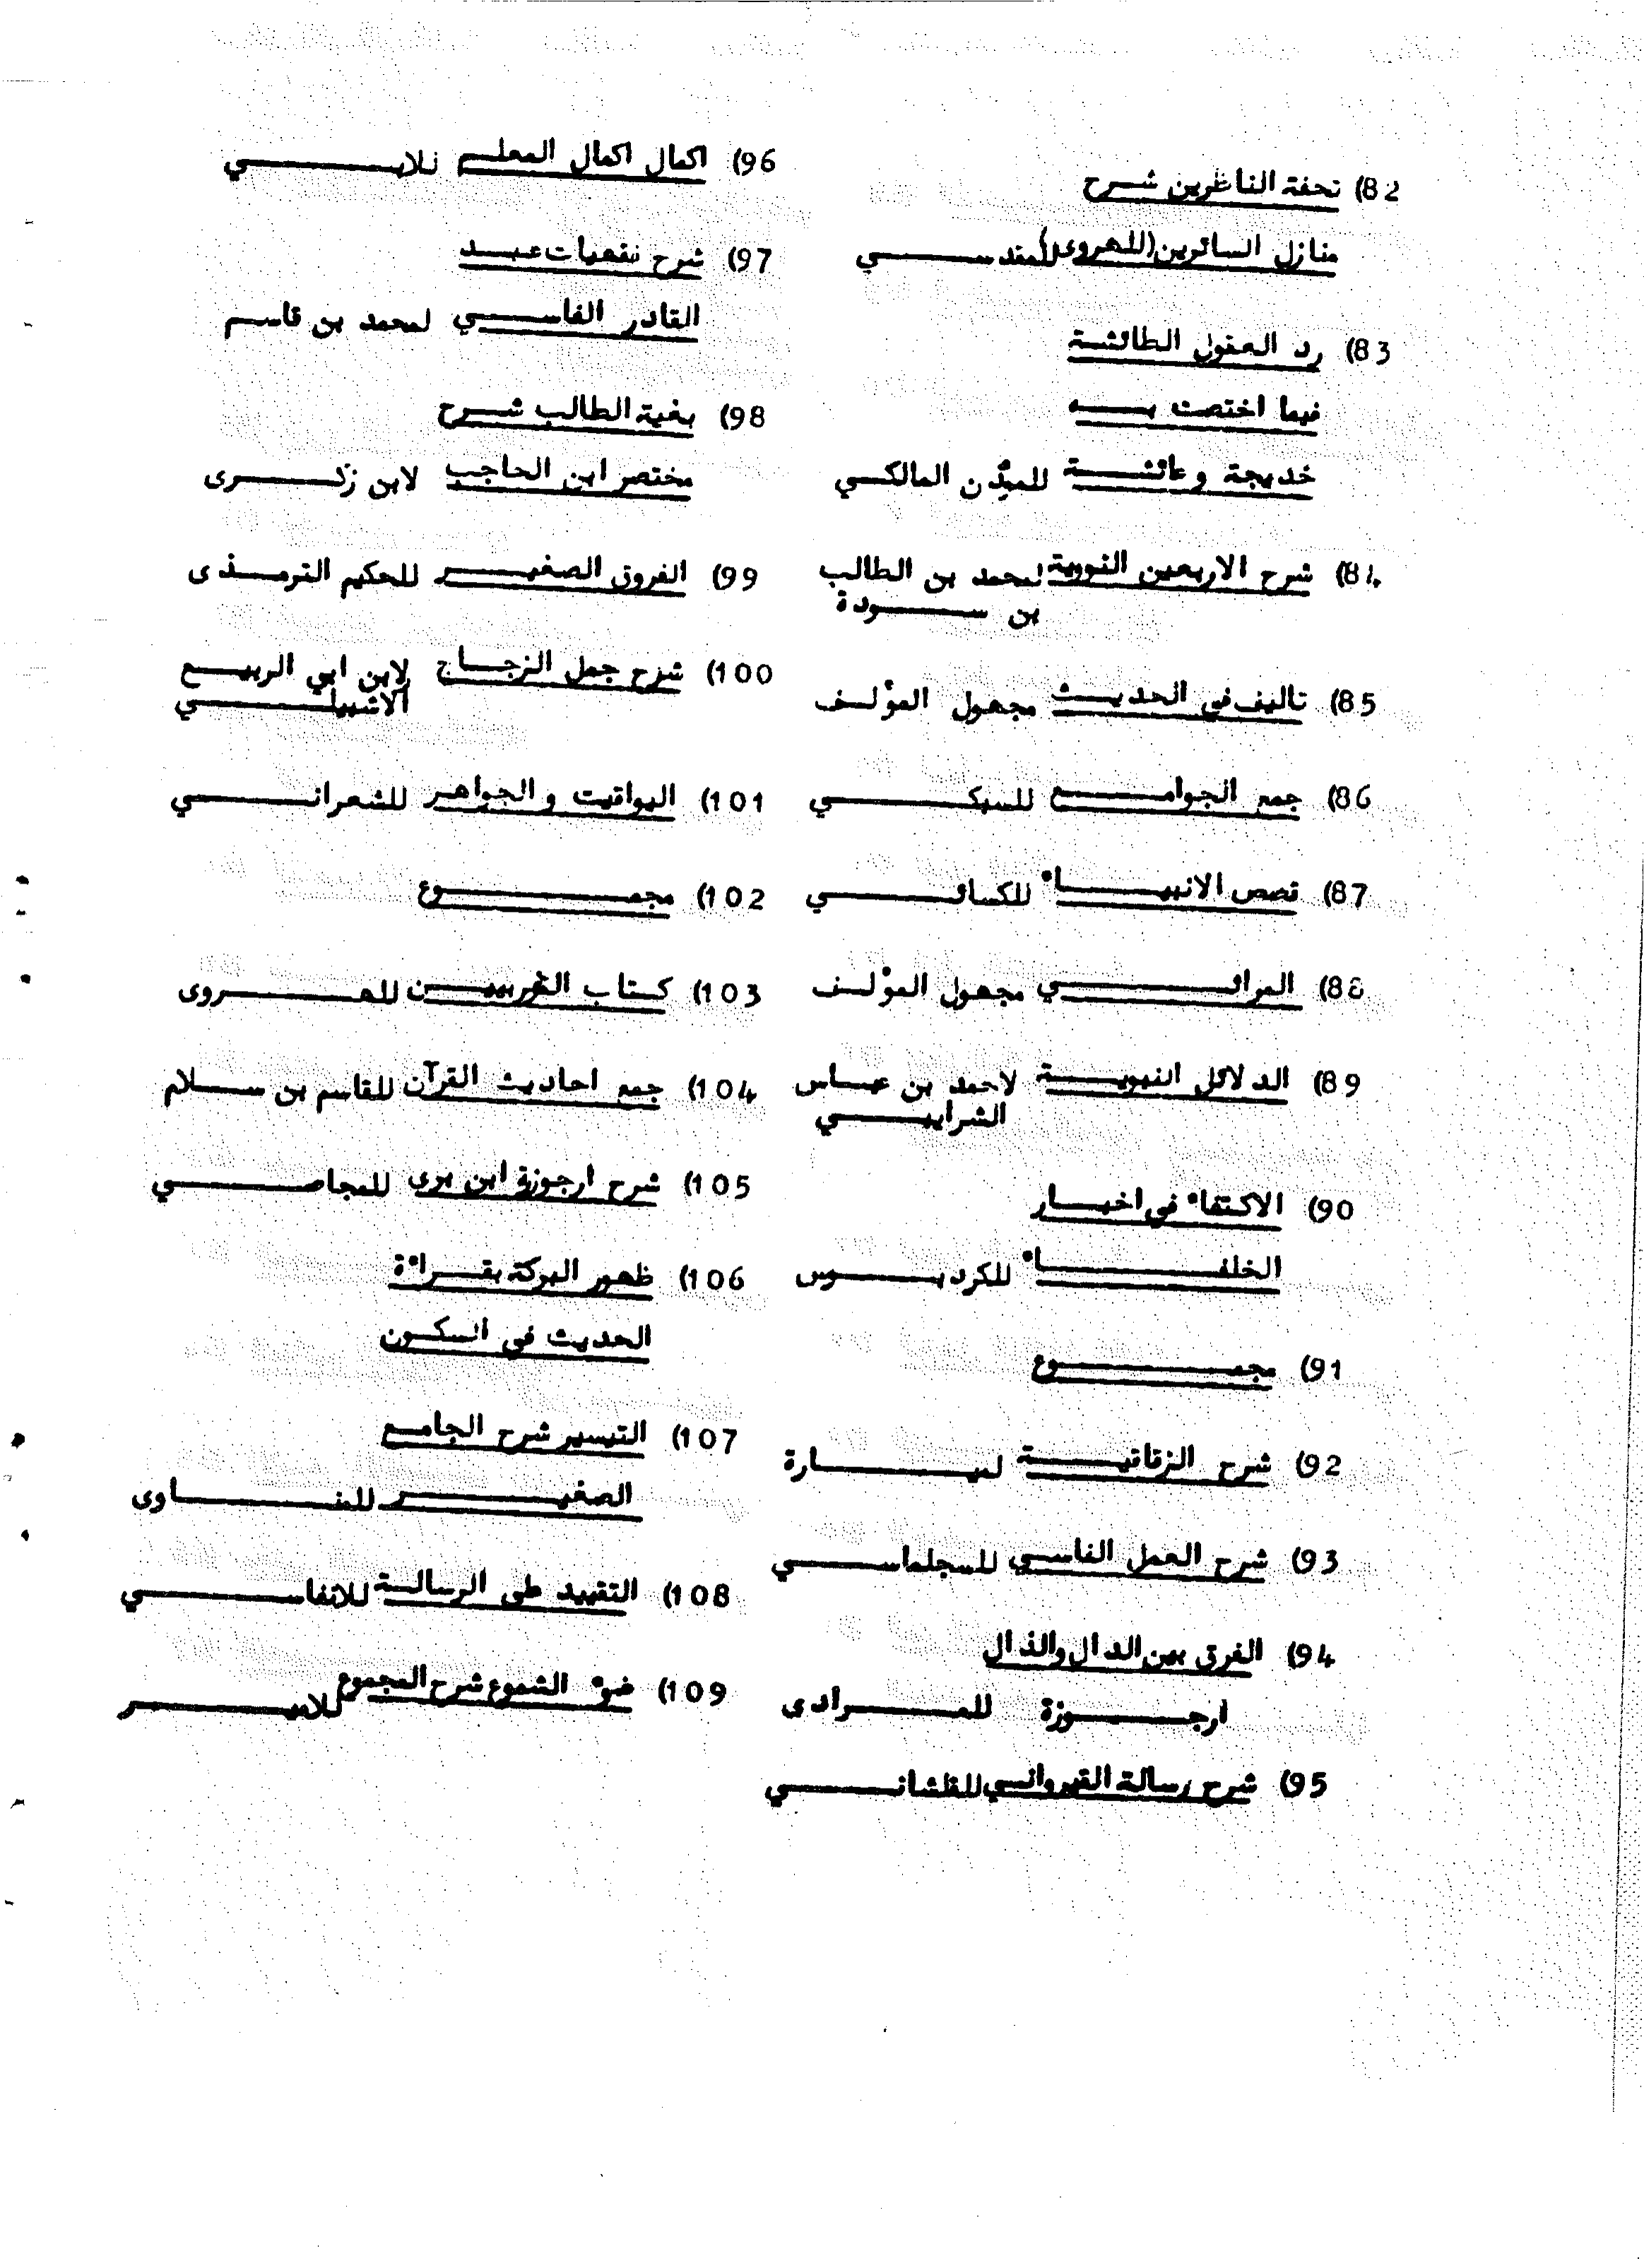 82) تحفة الناظرين شرح
منازل السائرين (للهروى) للمقدسي
83) رد العقول الطائشة
فيما اختصت به
خديجة وعائشة للمبدن المالكي
84) شرح الاربعين النووية لمحمد بن الطالب
بن سودة
85) تاليف في الحديث مجهول المؤلف
86) جمع الجوامع للسبكي
87) قصص الانبياء للكسائي
88) المرائي مجهول المؤلف
89) الدلائل النبوية لاحمد بن عباس
الشرايبي
90) الاكتفاء في اخبار
الخلفاء للكردبوس
91) مجموع
92) شرح الزقاقية لميارة
93) شرح العمل الفاسي للسجلماسي
94) الفرق بين الدال والذال
ارجوزة للمرادى
95) شرح رسالة القيرواني للقلشاني
96) اكمال اكمال المعلم للابي
97) شرح نقهيات عبد
القادر الفاسي لمحمد بن قاسم
98) بغية الطالب شرح
مختصر ابن الحاجب لابن زكرى
99) الفروق الصغير للحكيم الترمذى
100) شرح جمل الزجاج لابن ابي الربيع
الاشبيلي
101) اليواقيت والجواهر للشعراني
102) مجموع
103) كتاب الغريبين للهروى
104) جمع احاديث القرآن للقاسم بن سلام
105) شرح ارجوزة ابن برى للمجاصي
106) ظهور البركة بقراءة
الحديث في السكون
107) التيسير شرح الجامع
الصغير للمناوى
108) التقييد على الرسالة للانفاسي
109) ضوء الشموع شرح المجموع للامير